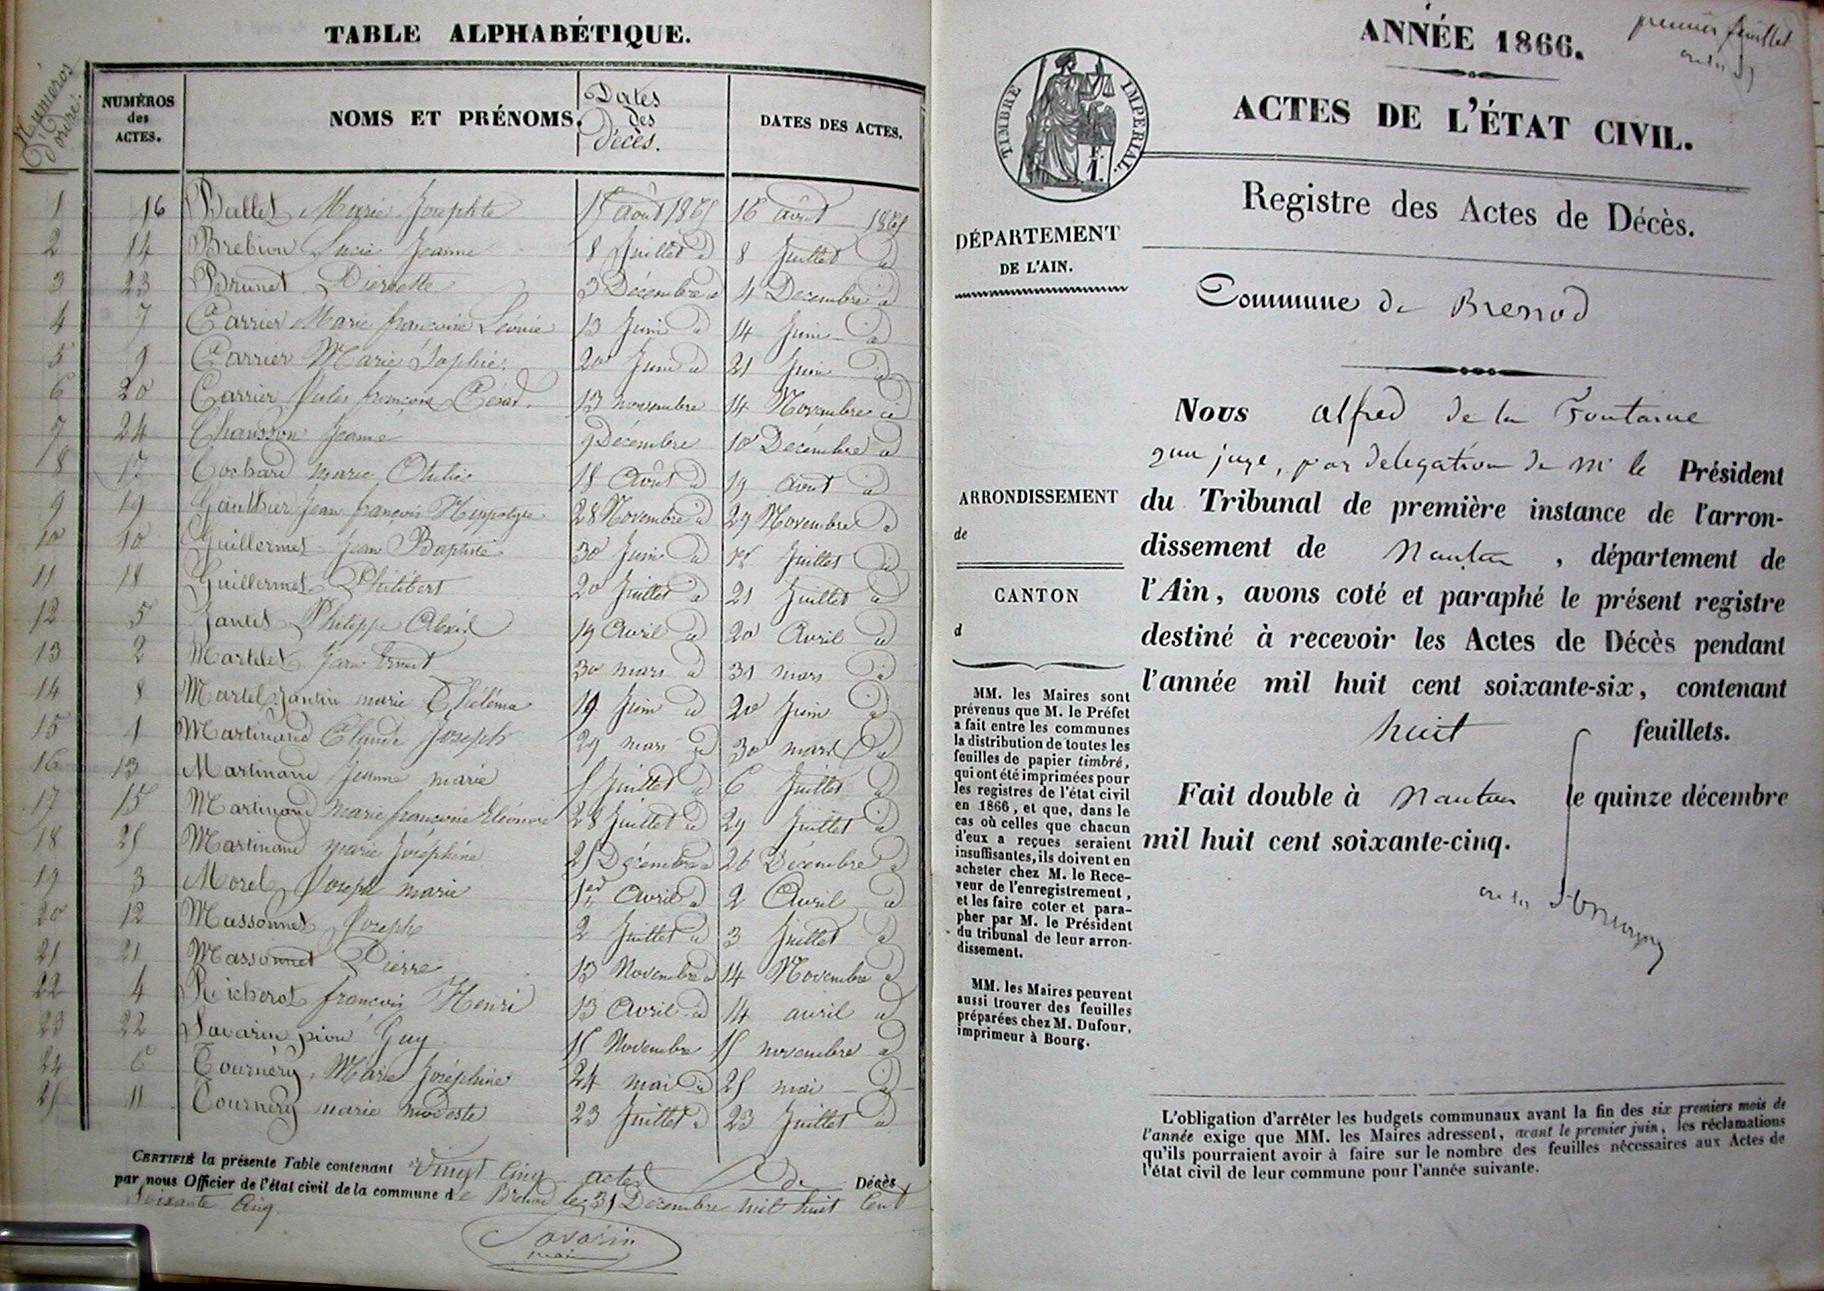 TABLE ALPHABÉTIQUE.
Numéros d'ordre. NUMÉROS des ACTES. NOMS ET PRÉNOMS. Dates des Décès. DATES DES ACTES.
1 16 Ballet Marie Josephte 15 août 1865 16 août 1865
2 14 Brebion Lucie Jeanne 8 Juillet id 8 Juillet id
3 23 Brunet Pierrette 3 Décembre id 4 Decembre id
4 7 Carrier Marie françoise Léonie 13 Juin id 14 Juin id
5 9 Carrier Marie Sophie. 20 Juin id 21 Juin id
6 20 Carrier Jules françois César. 13 novembre 14 Novembre id
7 24 Chausson Jeanne 9 Décembre 10 Decembre id
8 17 Cochard marie Otilie 18 Août id 19 Aout id
9 19 Gauthier Jean françois Hippolyte 28 Novembre id 29 Novembre id
10 10 Guillermet Jean Baptiste 30 Juin id Juillet id
11 18 Guillermet Philibert 20 Juillet id 21 Juillet id
12 5 Jantet Philippe Alexis 19 Avril id 20 Avril id
13 2 Martelet Jean Ernest 30 mars id 31 mars id
14 8 Martel-Jantin marie Théléma 19 Juin id 20 Juin id
15 1 Martinand Claude Joseph 29 mars id 30 mars id
16 13 Martinand Jeanne marie 5 Juillet id 6 Juillet id
17 15 Martinand marie françoise Eléonore 28 Juillet id 29 Juillet id
18 25 Martinand marie Joséphine 25 Décembre id 26 Décembre id
19 3 Morel Joseph marie 1er Avril id 2 Avril id
20 12 Massonnet Joseph 2 Juillet id 3 Juillet id
21 21 Massonnet Pierre 13 Novembre id 14 Novembre id
22 4 Richerot françois Henri 13 Avril id 14 avril id
23 22 Savarin pion Guy 15 Novembre 15 novembre id
24 6 Tournéry, Marie Joséphine 24 mai id 25 mai id
25 11 Tournéry marie modeste 23 Juillet id 23 Juillet id
CERTIFIÉ la présente Table contenant Vingt Cinq actes de Décès
par nous Officier de l'état civil de la commune de Brenod le 31 Decembre mil huit Cent
Soixante Cinq
Savarin
maire
premier feuillet
ANNÉE 1866.
TIMBRE IMPÉRIAL.
ACTES DE L'ÉTAT CIVIL.
Registre des Actes de Décès.
DÉPARTEMENT
DE L'AIN.
Commune de Brenod
Nous Alfred de la Fontaine
juge, par délégation de Mr le Président
du Tribunal de première instance de l'arron-
dissement de Nantua, département de
l'Ain, avons coté et paraphé le présent registre
destiné à recevoir les Actes de Décès pendant
l'année mil huit cent soixante-six, contenant
huit feuillets.
Fait double à Nantua le quinze décembre
mil huit cent soixante-cinq.
ARRONDISSEMENT
de
CANTON
d
MM. les Maires sont
prévenus que M. le Préfet
a fait entre les communes
la distribution de toutes les
feuilles de papier timbré,
qui ont été imprimées pour
les registres de l'état civil
en 1866, et que, dans le
cas où celles que chacun
d'eux a reçues seraient
insuffisantes, ils doivent en
acheter chez M. le Rece-
veur de l'enregistrement,
et les faire coter et para-
pher par M. le Président
du tribunal de leur arron-
dissement.
MM. les Maires peuvent
aussi trouver des feuilles
préparées chez M. Dufour,
imprimeur à Bourg.
L'obligation d'arrêter les budgets communaux avant la fin des six premiers mois de
l'année exige que MM. les Maires adressent, avant le premier juin, les réclamations
qu'ils pourraient avoir à faire sur le nombre des feuilles nécessaires aux Actes de
l'état civil de leur commune pour l'année suivante.